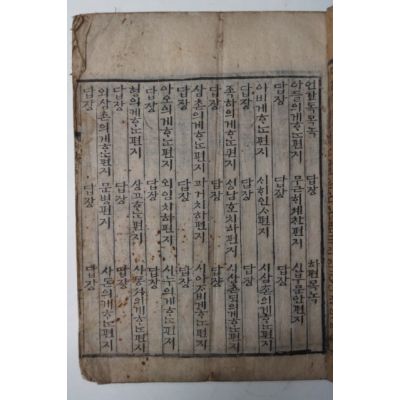 언간독목녹 답장 하편목녹
아들의게ᄒᆞᄂᆞᆫ편지 무근ᄒᆡ세찬편지 신부문안편지
답장 답장 답장
아비게ᄒᆞᄂᆞᆫ편지 ᄉᆡᄒᆡ인ᄉᆞ편지 시삼촌의게ᄒᆞᄂᆞᆫ편지
답장 답장 답장
족하의게ᄒᆞᄂᆞᆫ편지 치하편지 시삼촌ᄃᆡᆨ의게ᄒᆞᄂᆞᆫ편지
답장 답장 답장
삼촌의게ᄒᆞᄂᆞᆫ편지 과거치하편지 싀아ᄌᆞ비게ᄒᆞᄂᆞᆫ편지
답장 답장 답장
아오의게ᄒᆞᄂᆞᆫ편지 외임치하편지 시누의게ᄒᆞᄂᆞᆫ편지
답장 답장 답장
형의게ᄒᆞᄂᆞᆫ편지 상고ᄒᆞᄂᆞᆫ편지 ᄒᆞᄂᆞᆫ편지
답장 답장 답장
외삼촌의게ᄒᆞᄂᆞᆫ편지 문병편지 사돈의게ᄒᆞᄂᆞᆫ편지
답장 답장 답장